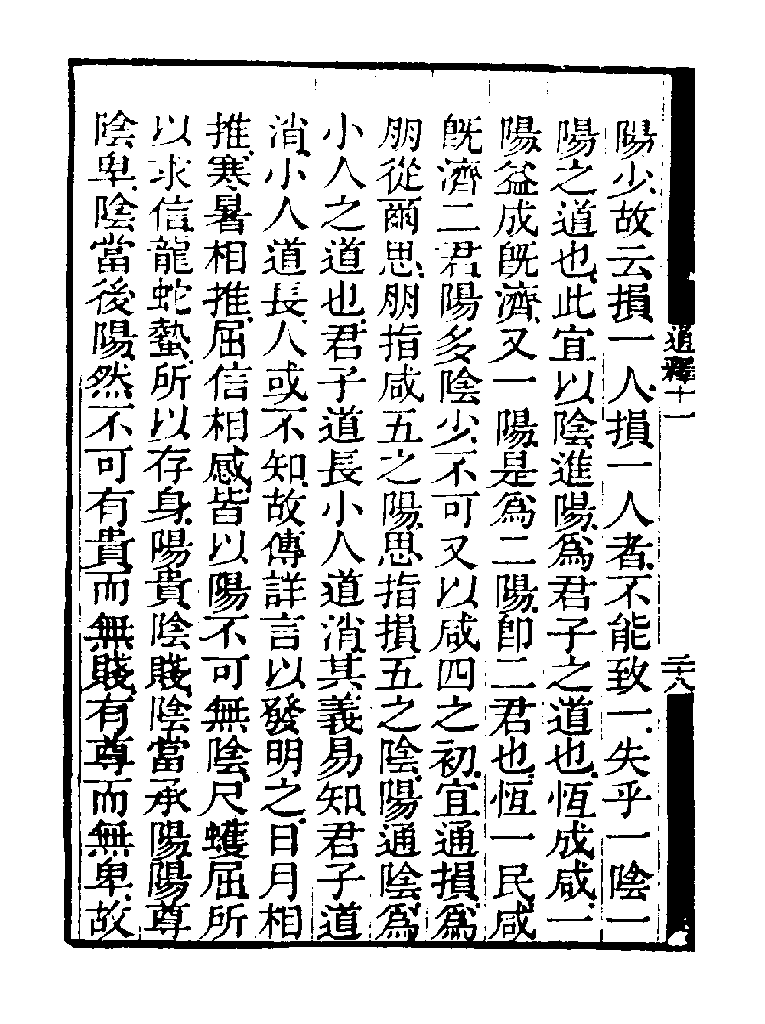 陽少故云損一人損一人者不能致一失乎一陰一
陽之道也此宜以陰進陽爲君子之道也恆成咸一
陽益成旣濟又一陽是爲二陽卽二君也恆一民咸
旣濟二君陽多陰少不可又以咸四之初宜通損爲
朋從爾思朋指咸五之陽思指損五之陰陽通陰爲
小人之道也君子道長小人道消其義易知君子道
消小人道長人或不知故傳詳言以發明之日月相
推寒暑相推屈信相感皆以陽不可無陰尺蠖屈所
以求信龍蛇蟄所以存身陽貴陰賤陰當承陽陽尊
陰卑陰當後陽然不可有貴而無賤有尊而無卑故
通釋十一
二十八